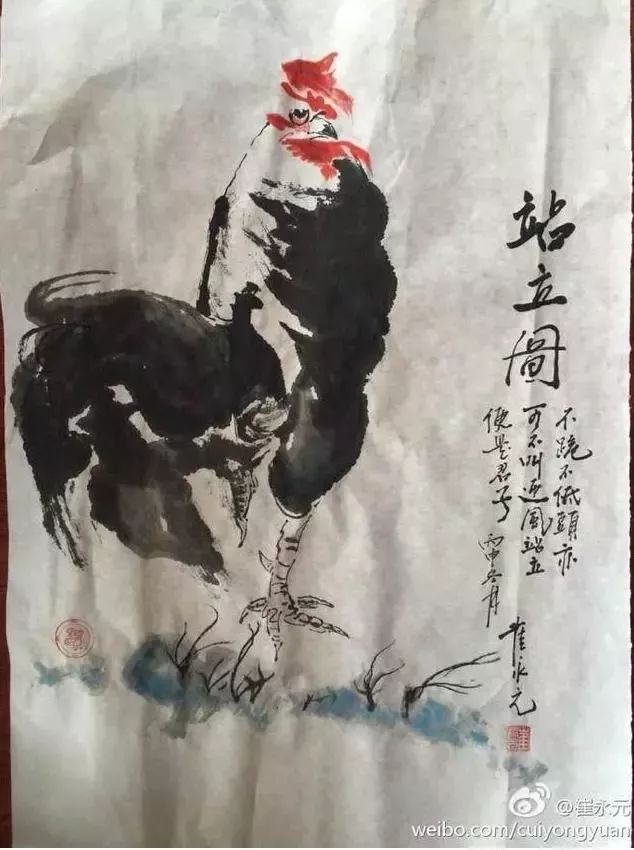 站立圖
不跪不低頭亦
可不叫迎風站立
便是君子 丙申冬月
崔永元
@崔永元
weibo.com/cuiyongyuan